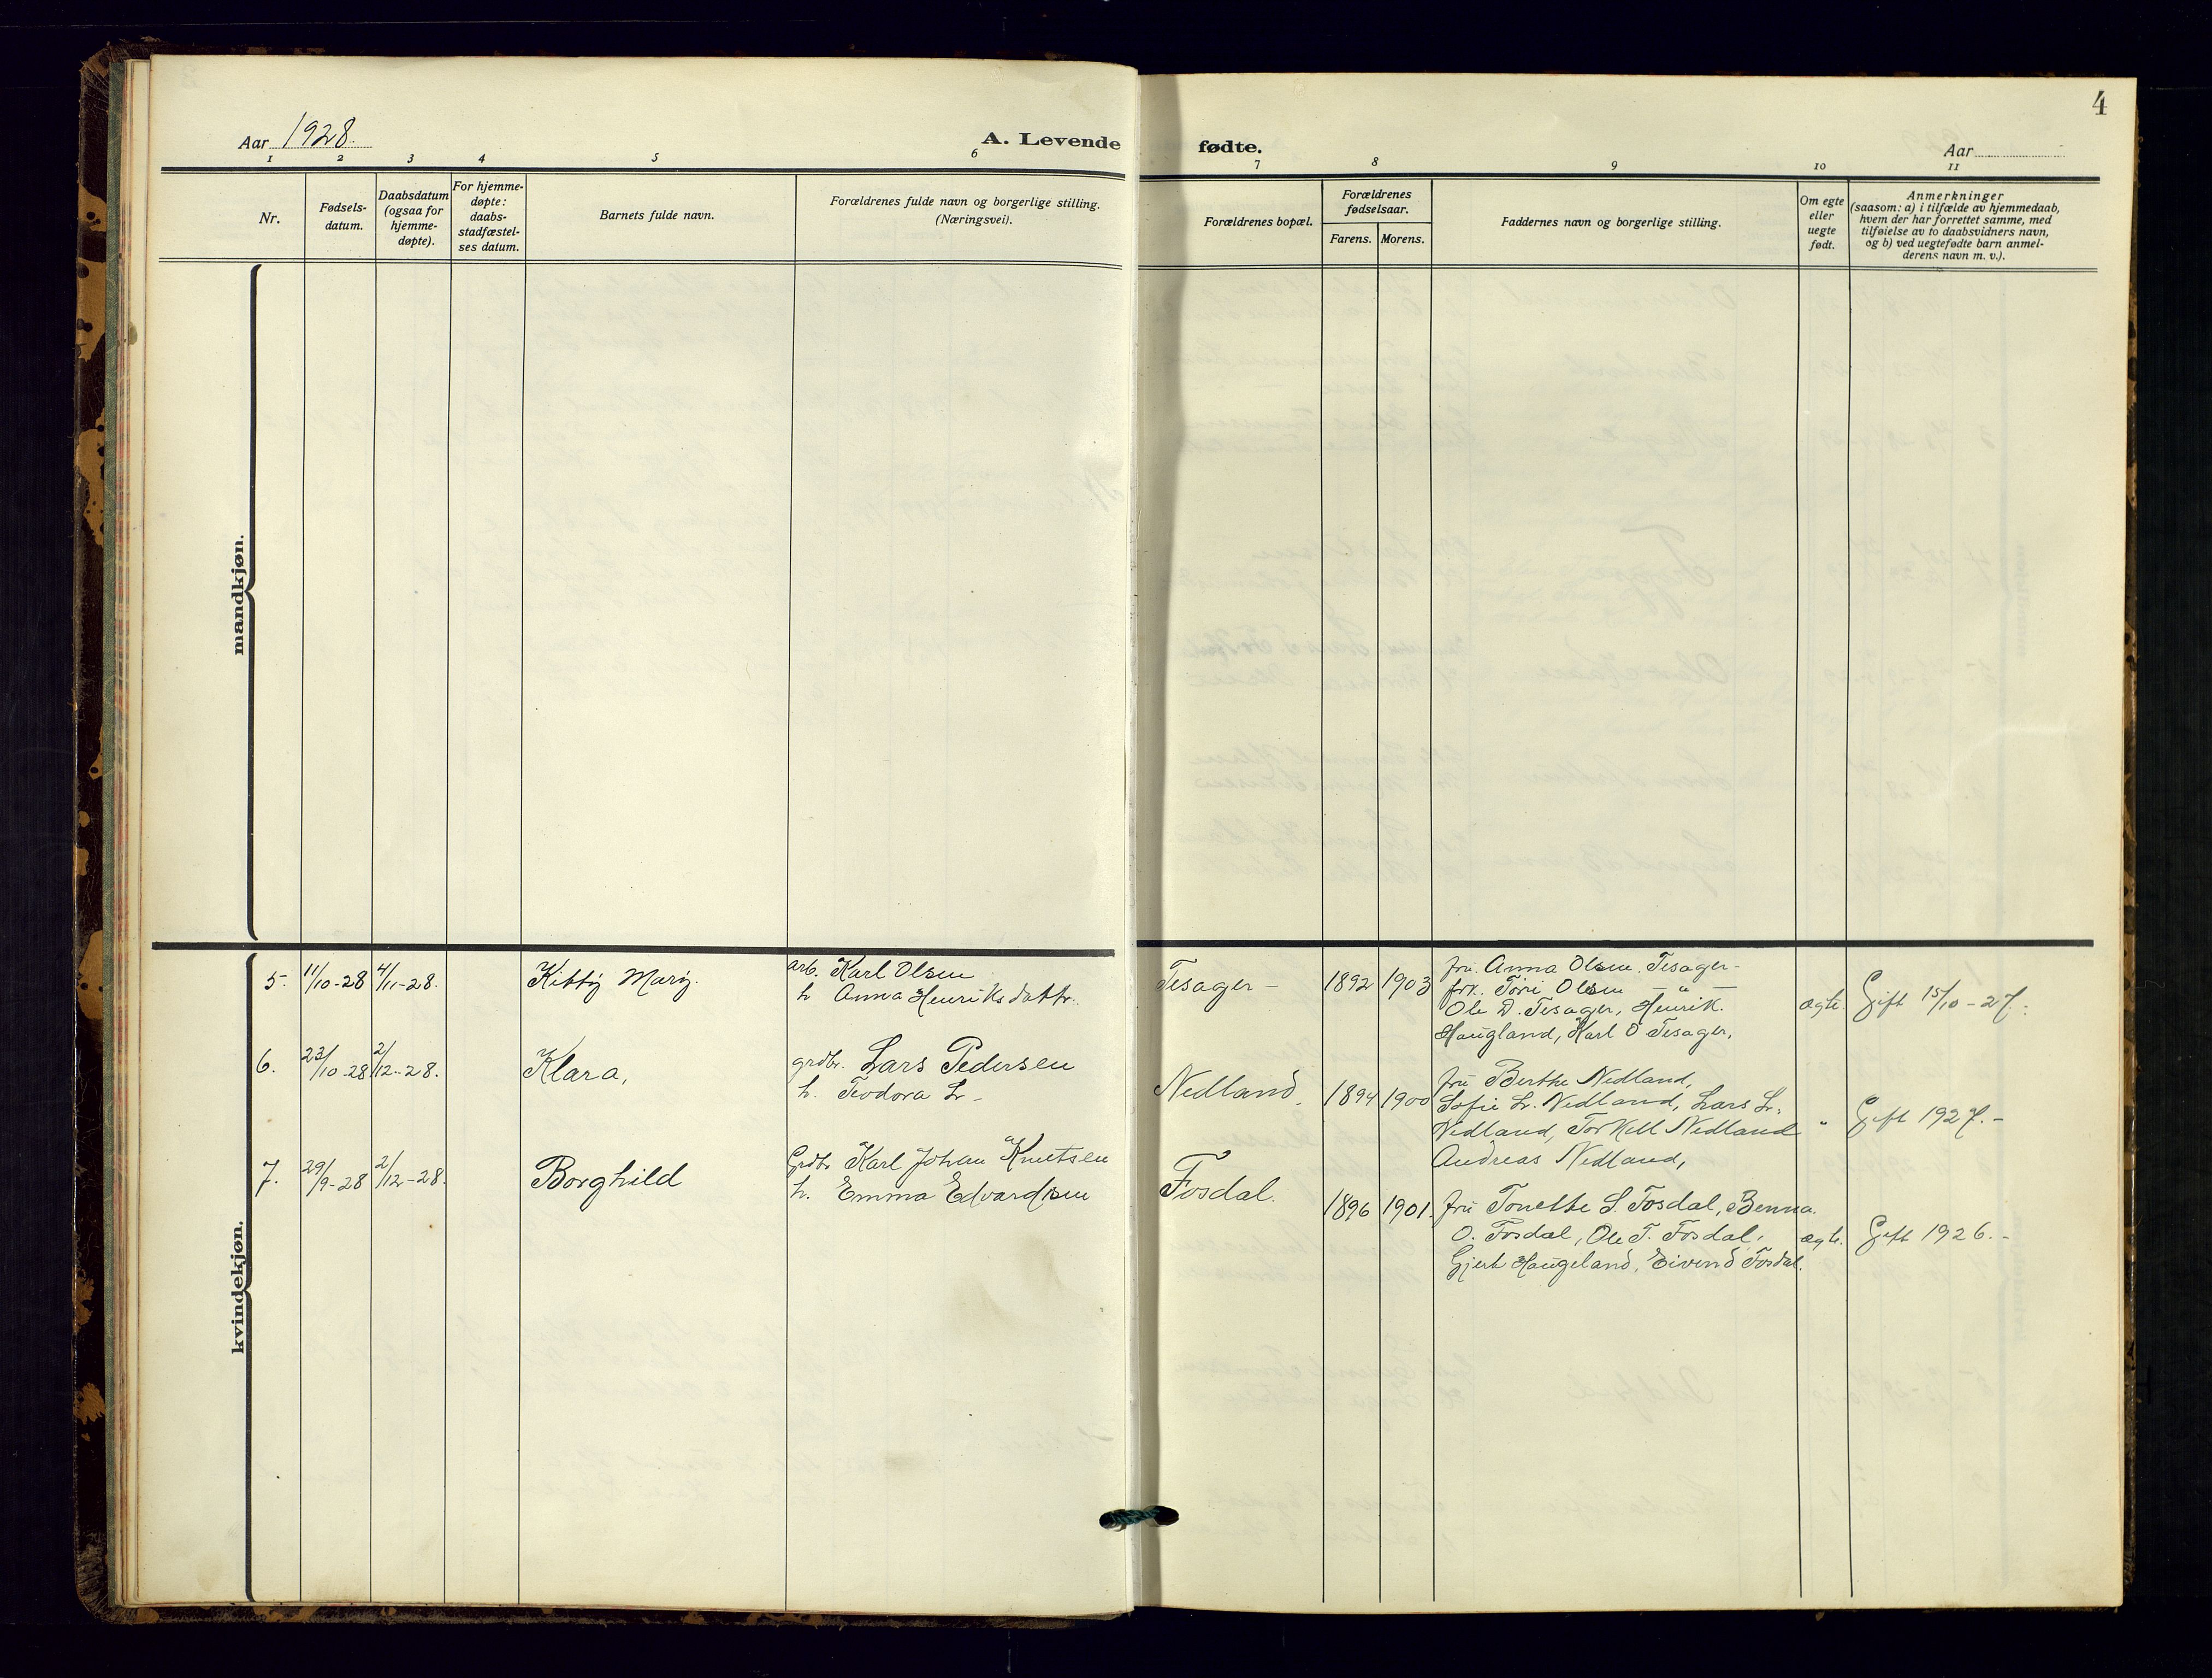 4
Aar 1928.
A. Levende fødte.
Aar
1 2 3 4 5 6 7 8 9 10 11
Nr.
Fødsels-
datum.
Daabsdatum
(ogsaa for
hjemme-
døpte).
For hjemme-
døpte:
daabs-
stadfæstel-
ses datum.
Barnets fulde navn.
Forældrenes fulde navn og borgerlige stilling.
(Næringsvei).
Forældrenes bopæl.
Forældrenes
fødselsaar.
Farens. Morens.
Faddernes navn og borgerlige stilling.
Om egte
eller
uegte
født.
Anmerkninger
(saasom: a) i tilfælde av hjemmedaab,
hvem der har forrettet samme, med
tilføielse av to daabsvidners navn,
og b) ved uegtefødte barn anmel-
derens navn m. v.).
mandkjøn.
kvindekjøn.
5. 11/10-28 4/11-28. Kitty Mary.
arb. Karl Olsen
h. Anna Henriksdattr.
Tesager - 1892 1903
fru. Anna Olsen. Tesager-
frk. Tori Olsen — " —
Ole D. Tesager, Henrik.
Haugland, Karl O Tesager.
ægte. Gift 15/10-27.
6. 23/10-28 2/12-28. Klara,
grdbr. Lars Pedersen
h. Teodora L-
Nedland. 1894 1900
fru Berthe Nedland,
Sofie L. Nedland, Lars L.
Nedland, Torkell Nedland
Andreas Nedland,
" Gift 1927.-
7. 29/9-28 2/12-28. Borghild
Grdbr Karl Johan Knutsen
h. Emma Edvardsen
Fosdal. 1896 1901.
fru Tonette S. Fosdal, Benna.
O. Fosdal, Ole T. Fosdal,
Gjert Haugeland, Eivind Fosdal.
ægte. Gift 1926.-